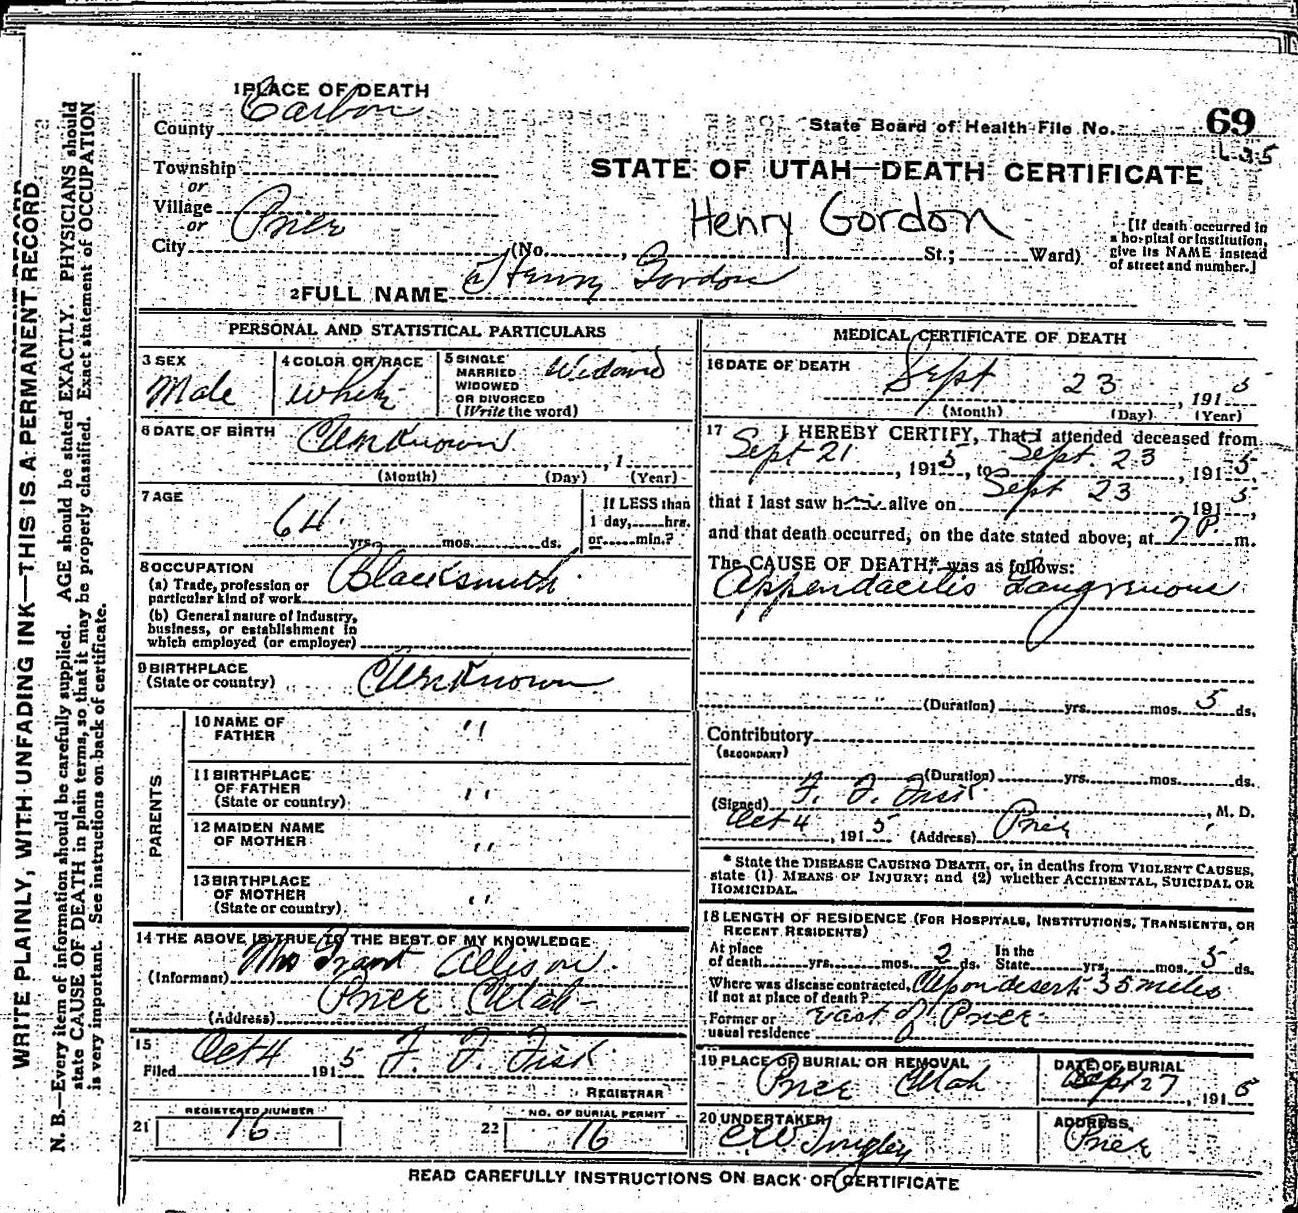 1 PLACE OF DEATH
Carbon
County
State Board of Health File No. 69
STATE OF UTAH—DEATH CERTIFICATE
Township
or
Village
or
City Price
Henry Gordon
(No. , St.; Ward)
[If death occurred in
a hospital or institution,
give its NAME instead
of street and number.]
2 FULL NAME Henry Gordon
PERSONAL AND STATISTICAL PARTICULARS
3 SEX
Male
4 COLOR OR RACE
White
5 SINGLE
MARRIED
WIDOWED
OR DIVORCED
(Write the word)
6 DATE OF BIRTH Unknown
, 1
(Month) (Day) (Year)
7 AGE
64
yrs. mos. ds.
If LESS than
1 day, hrs.
or min.?
8 OCCUPATION
(a) Trade, profession or
particular kind of work Blacksmith
(b) General nature of Industry,
business, or establishment in
which employed (or employer)
9 BIRTHPLACE
(State or country) Unknown
PARENTS
10 NAME OF
FATHER "
11 BIRTHPLACE
OF FATHER
(State or country) "
12 MAIDEN NAME
OF MOTHER "
13 BIRTHPLACE
OF MOTHER
(State or country) "
14 THE ABOVE IS TRUE TO THE BEST OF MY KNOWLEDGE
(Informant) Mrs Grant Allison
(Address) Price Utah
15
Filed Oct 4 1915 F. F. Fisk
REGISTRAR
REGISTERED NUMBER
21 76
NO. OF BURIAL PERMIT
22 76
MEDICAL CERTIFICATE OF DEATH
16 DATE OF DEATH
Sept 23 , 1915
(Month) (Day) (Year)
17 I HEREBY CERTIFY, That I attended deceased from
Sept 21 , 1915, to Sept. 23 , 1915,
that I last saw him alive on Sept 23 , 1915,
and that death occurred, on the date stated above, at 7 P m.
The CAUSE OF DEATH* was as follows:
Appendacitis Gangrenous
(Duration) yrs. mos. 5 ds.
Contributory
(SECONDARY)
(Duration) yrs. mos. ds.
(Signed) F. F. Fisk , M. D.
Oct 4 , 1915 (Address) Price
* State the DISEASE CAUSING DEATH, or, in deaths from VIOLENT CAUSES,
state (1) MEANS OF INJURY; and (2) whether ACCIDENTAL, SUICIDAL OR
HOMICIDAL.
18 LENGTH OF RESIDENCE (FOR HOSPITALS, INSTITUTIONS, TRANSIENTS, OR
RECENT RESIDENTS)
At place
of death yrs. mos. 2 ds. In the
State yrs. mos. 5 ds.
Where was disease contracted,
if not at place of death? Upon desert 35 miles
Former or
usual residence east of Price
19 PLACE OF BURIAL OR REMOVAL
Price Utah
DATE OF BURIAL
Sept 27 , 1915
20 UNDERTAKER
ADDRESS
Price
READ CAREFULLY INSTRUCTIONS ON BACK OF CERTIFICATE
WRITE PLAINLY, WITH UNFADING INK—THIS IS A PERMANENT RECORD
N. B.—Every item of information should be carefully supplied. AGE should be stated EXACTLY. PHYSICIANS should
state CAUSE OF DEATH in plain terms, so that it may be properly classified. Exact statement of OCCUPATION
is very important. See instructions on back of certificate.